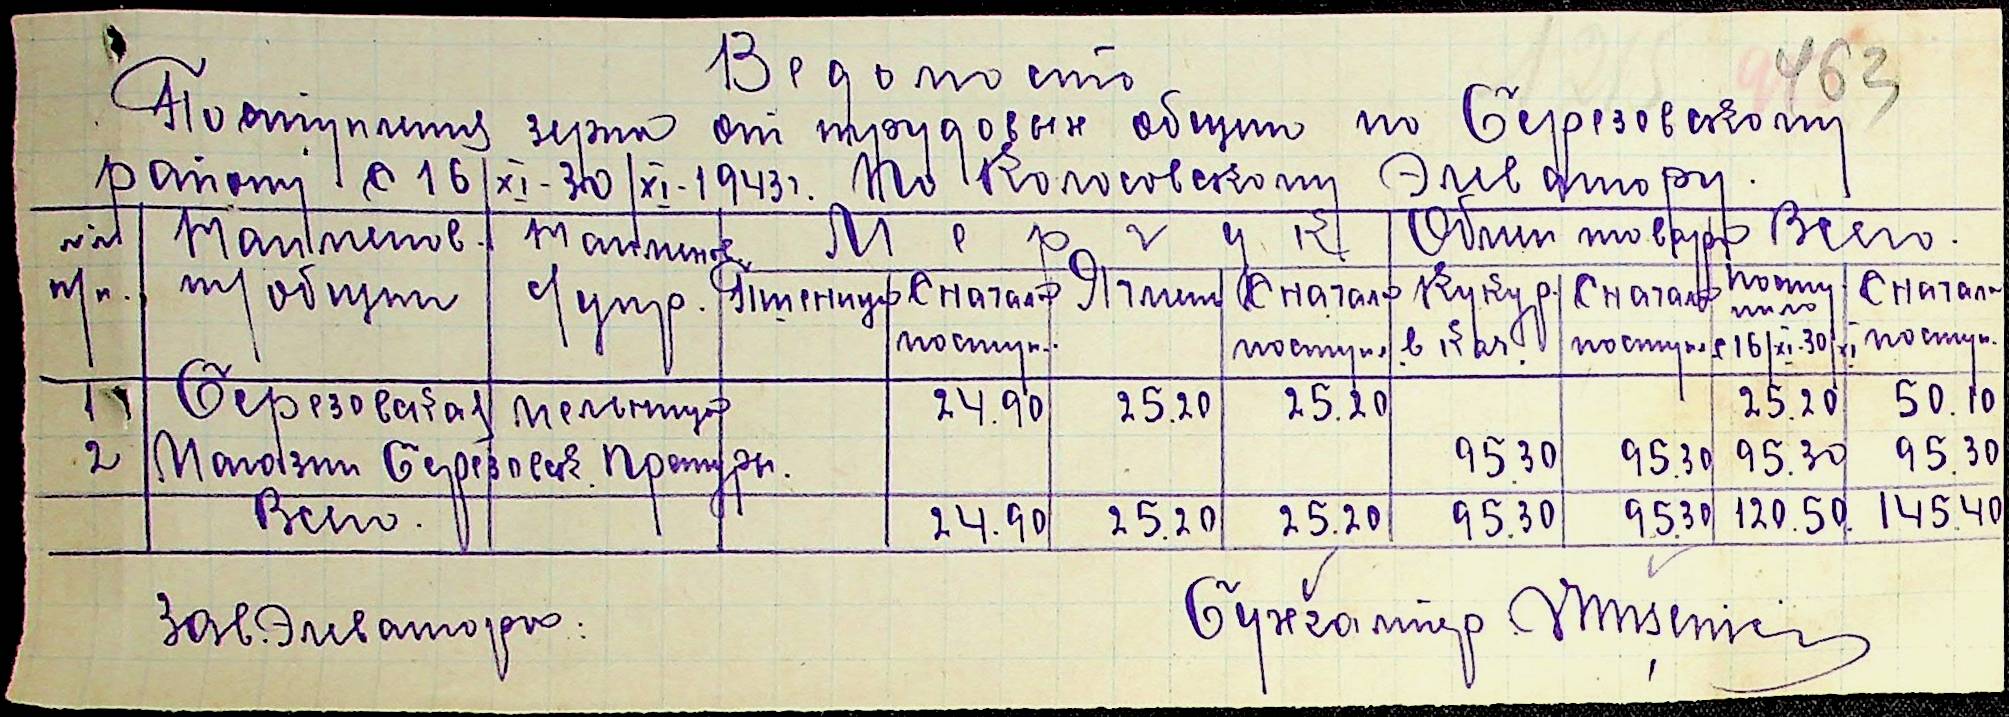 463
Ведомость
Поступления зерна от трудовых общин по Березовскому
району с 16/XI-30/XI-1943г. По Колосовскому Элеватору.
№№ Наименов. Наименов. Мерчук Обмен товара Всего.
п/п. т/общин учир. Пшеница С начала Ячмень С начала Кукур. С начала Посту С начала
поступ. поступ. в кач. поступ. пило с 16/XI-30/XI поступ.
1 Березовская мельница 24.90 25.20 25.20 25.20 50.10
2 Магазин Березовск. Претуры. 95.30 95.30 95.30 95.30
Всего. 24.90 25.20 25.20 95.30 95.30 120.50 145.40
Зав. Элеватора: Бухгалтер